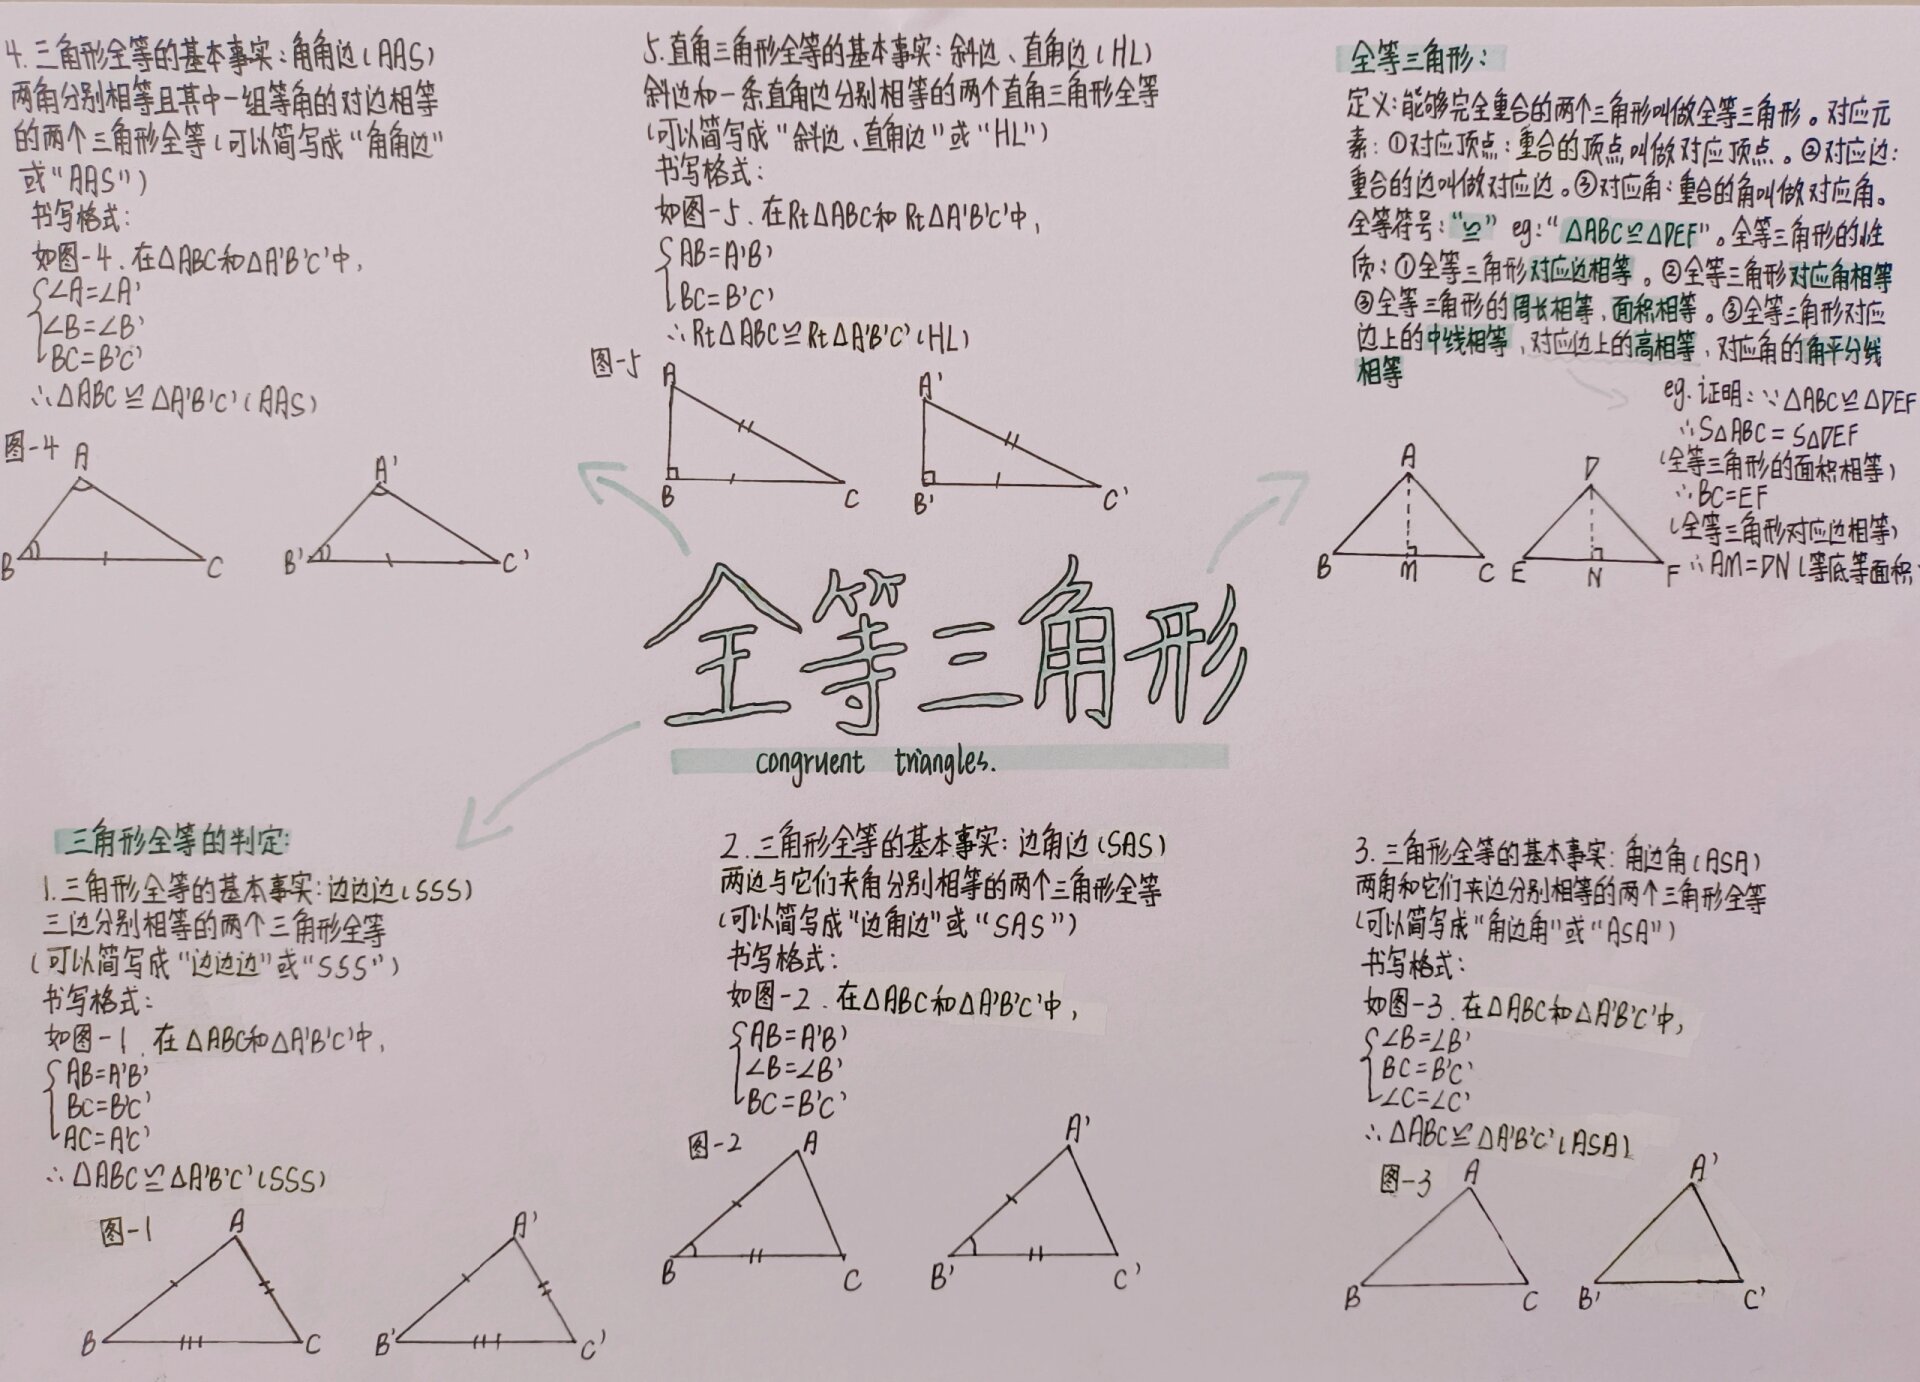 4.三角形全等的基本事实:角角边(AAS)
两角分别相等且其中一组等角的对边相等
的两个三角形全等(可以简写成“角角边”
或“AAS”)
书写格式:
如图-4.在△ABC和△A'B'C'中,
∠A=∠A'
∠B=∠B'
BC=B'C'
∴△ABC≌△A'B'C'(AAS)
图-4
A
B
C
A'
B'
C'
5.直角三角形全等的基本事实:斜边、直角边(HL)
斜边和一条直角边分别相等的两个直角三角形全等
(可以简写成“斜边、直角边”或“HL”)
书写格式:
如图-5.在Rt△ABC和Rt△A'B'C'中,
AB=A'B'
BC=B'C'
∴Rt△ABC≌Rt△A'B'C'(HL)
图-5
A
B
C
A'
B'
C'
全等三角形:
定义:能够完全重合的两个三角形叫做全等三角形。对应元
素:①对应顶点:重合的顶点叫做对应顶点。②对应边:
重合的边叫做对应边。③对应角:重合的角叫做对应角。
全等符号:“≌”eg:“△ABC≌△DEF”。全等三角形的性
质:①全等三角形对应边相等。②全等三角形对应角相等
③全等三角形的周长相等,面积相等。③全等三角形对应
边上的中线相等,对应边上的高相等,对应角的角平分线
相等
eg.证明:∵△ABC≌△DEF
∴S△ABC=S△DEF
(全等三角形的面积相等)
∴BC=EF
(全等三角形对应边相等)
∴AM=DN(等底等面积
A
B
M
C
D
E
N
F
全等三角形
congruent triangles.
三角形全等的判定:
1.三角形全等的基本事实:边边边(SSS)
三边分别相等的两个三角形全等
(可以简写成“边边边”或“SSS”)
书写格式:
如图-1.在△ABC和△A'B'C'中,
AB=A'B'
BC=B'C'
AC=A'C'
∴△ABC≌△A'B'C'(SSS)
图-1
A
B
C
A'
B'
C'
2.三角形全等的基本事实:边角边(SAS)
两边与它们夹角分别相等的两个三角形全等
(可以简写成“边角边”或“SAS”)
书写格式:
如图-2.在△ABC和△A'B'C'中,
AB=A'B'
∠B=∠B'
BC=B'C'
图-2
A
B
C
A'
B'
C'
3.三角形全等的基本事实:角边角(ASA)
两角和它们夹边分别相等的两个三角形全等
(可以简写成“角边角”或“ASA”)
书写格式:
如图-3.在△ABC和△A'B'C'中,
∠B=∠B'
BC=B'C'
∠C=∠C'
∴△ABC≌△A'B'C'(ASA)
图-3
A
B
C
A'
B'
C'